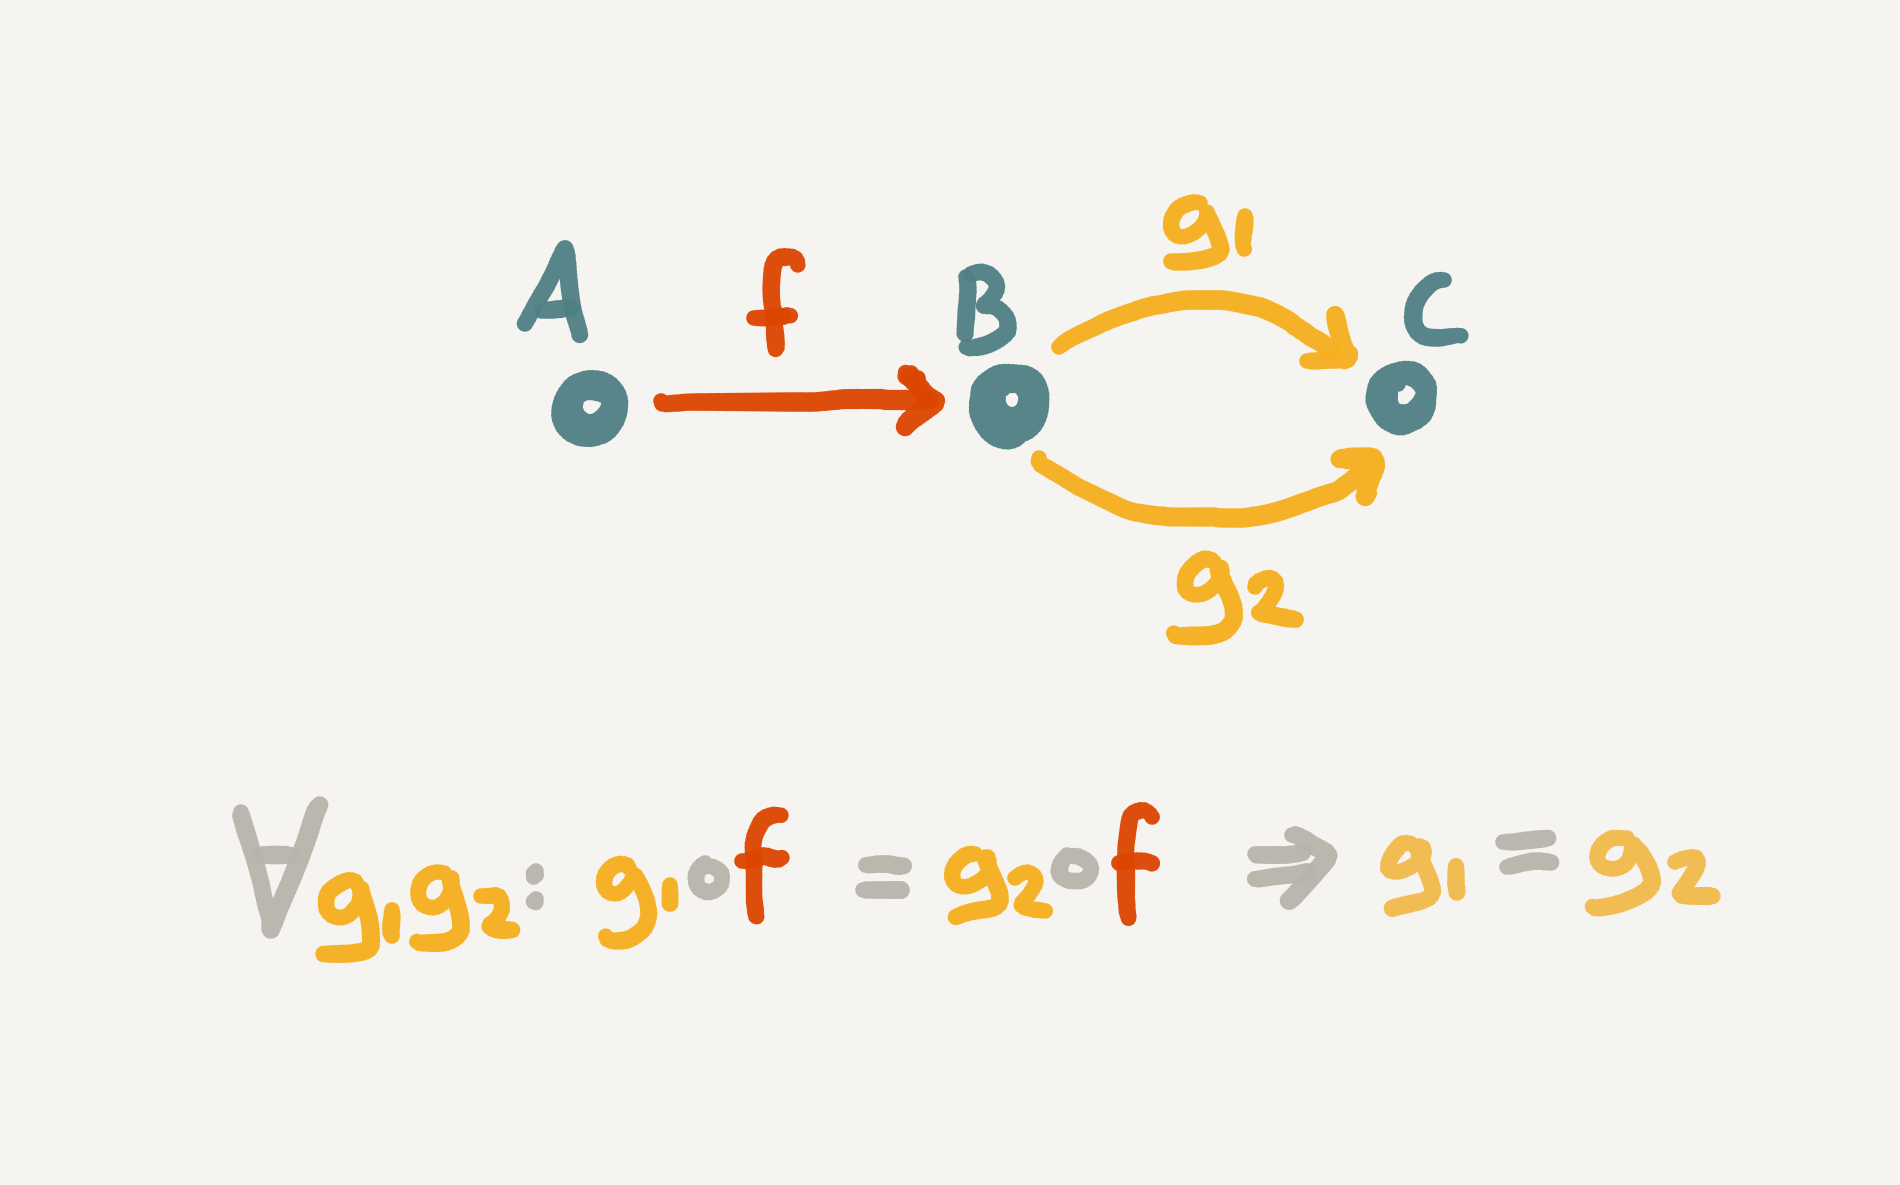 A f B g1 C
g2
∀g1g2: g1∘f = g2∘f ⇒ g1 = g2